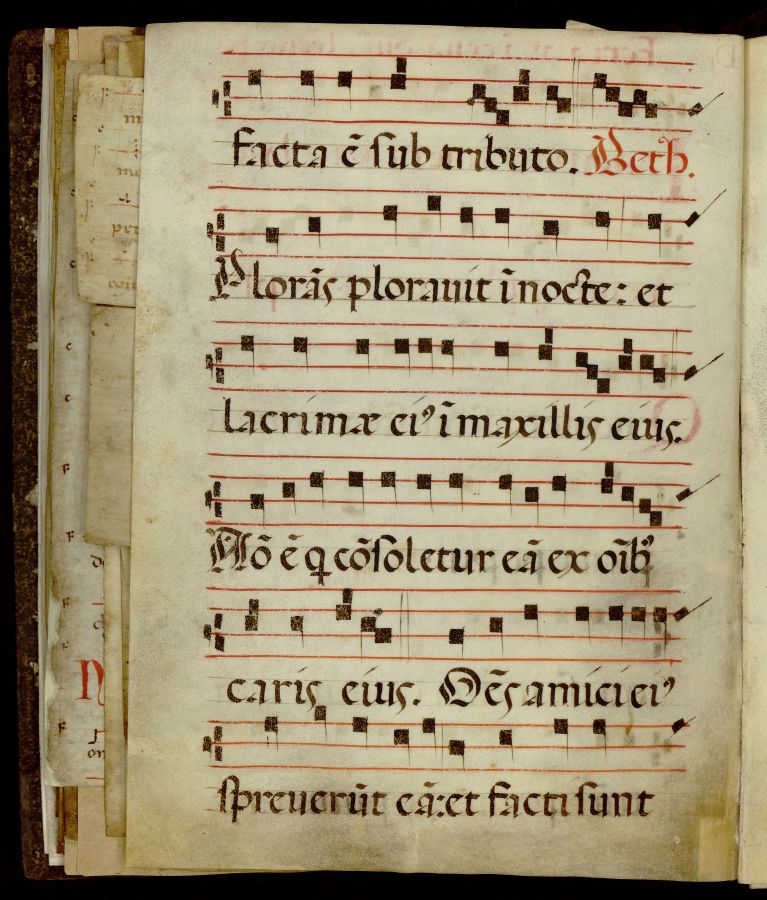 facta ē sub tributo. Beth.
Plorãs plorauit ĩ nocte: et
lacrimæ eiꝰ ĩ maxillis eius.
Nõ ē q̃ cõsoletur eã ex oĩbꝰ
caris eius. Oẽs amici eiꝰ
spreuerũt eã: et facti sunt